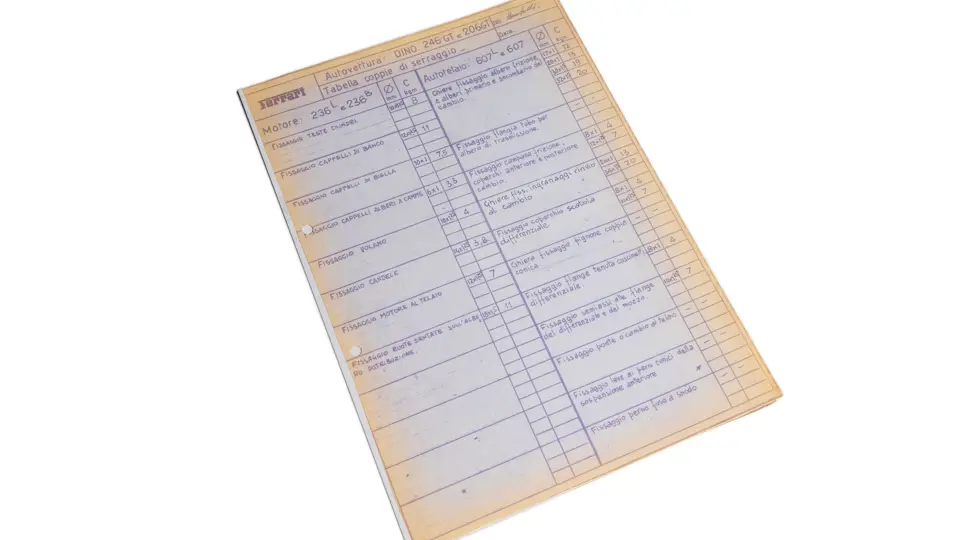 Ferrari
Autovettura: DINO 246 GT e 206GT
Tabella coppie di serraggio
Data
Motore: 236 L e 236 B
Ø mm
C Kgm
Autotelaio: 607 L e 607
Ø mm
C Kgm
FISSAGGIO TESTE CILINDRI
8
FISSAGGIO CAPPELLI DI BANCO
11
FISSAGGIO CAPPELLI DI BIELLA
10x1
7,5
FISSAGGIO CAPPELLI ALBERO A CAMME
8x1
3,3
FISSAGGIO VOLANO
4
FISSAGGIO CANDELE
FISSAGGIO MOTORE AL TELAIO
7
FISSAGGIO RUOTE DENTATE SUGL'ALBE
RO DISTRIBUZIONE.
11
Ghiere fissaggio albero frizione
e alberi primario e secondario del
cambio.
20
Fissaggio flangia tubo per
albero di trasmissione.
Fissaggio campana frizione,
coperchi anteriore e posteriore
cambio.
8x1
4
7
Ghiere fiss. ingranaggi rinvio
al cambio
20
Fissaggio coperchio scatola
differenziale.
8x1
4
7
Ghiera fissaggio pignone coppia
conica
Fissaggio flange tenuta cuscinetti
differenziale.
8x1
4
Fissaggio semiassi alle flange
del differenziale e del mozzo.
7
Fissaggio ponte o cambio al telaio
Fissaggio leve ai perni conici della
sospensione anteriore
Fissaggio perno fuso a snodo